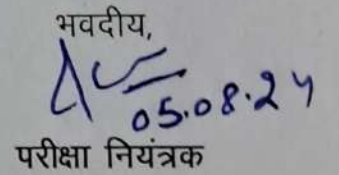 भवदीय,
05.08.24
परीक्षा नियंत्रक